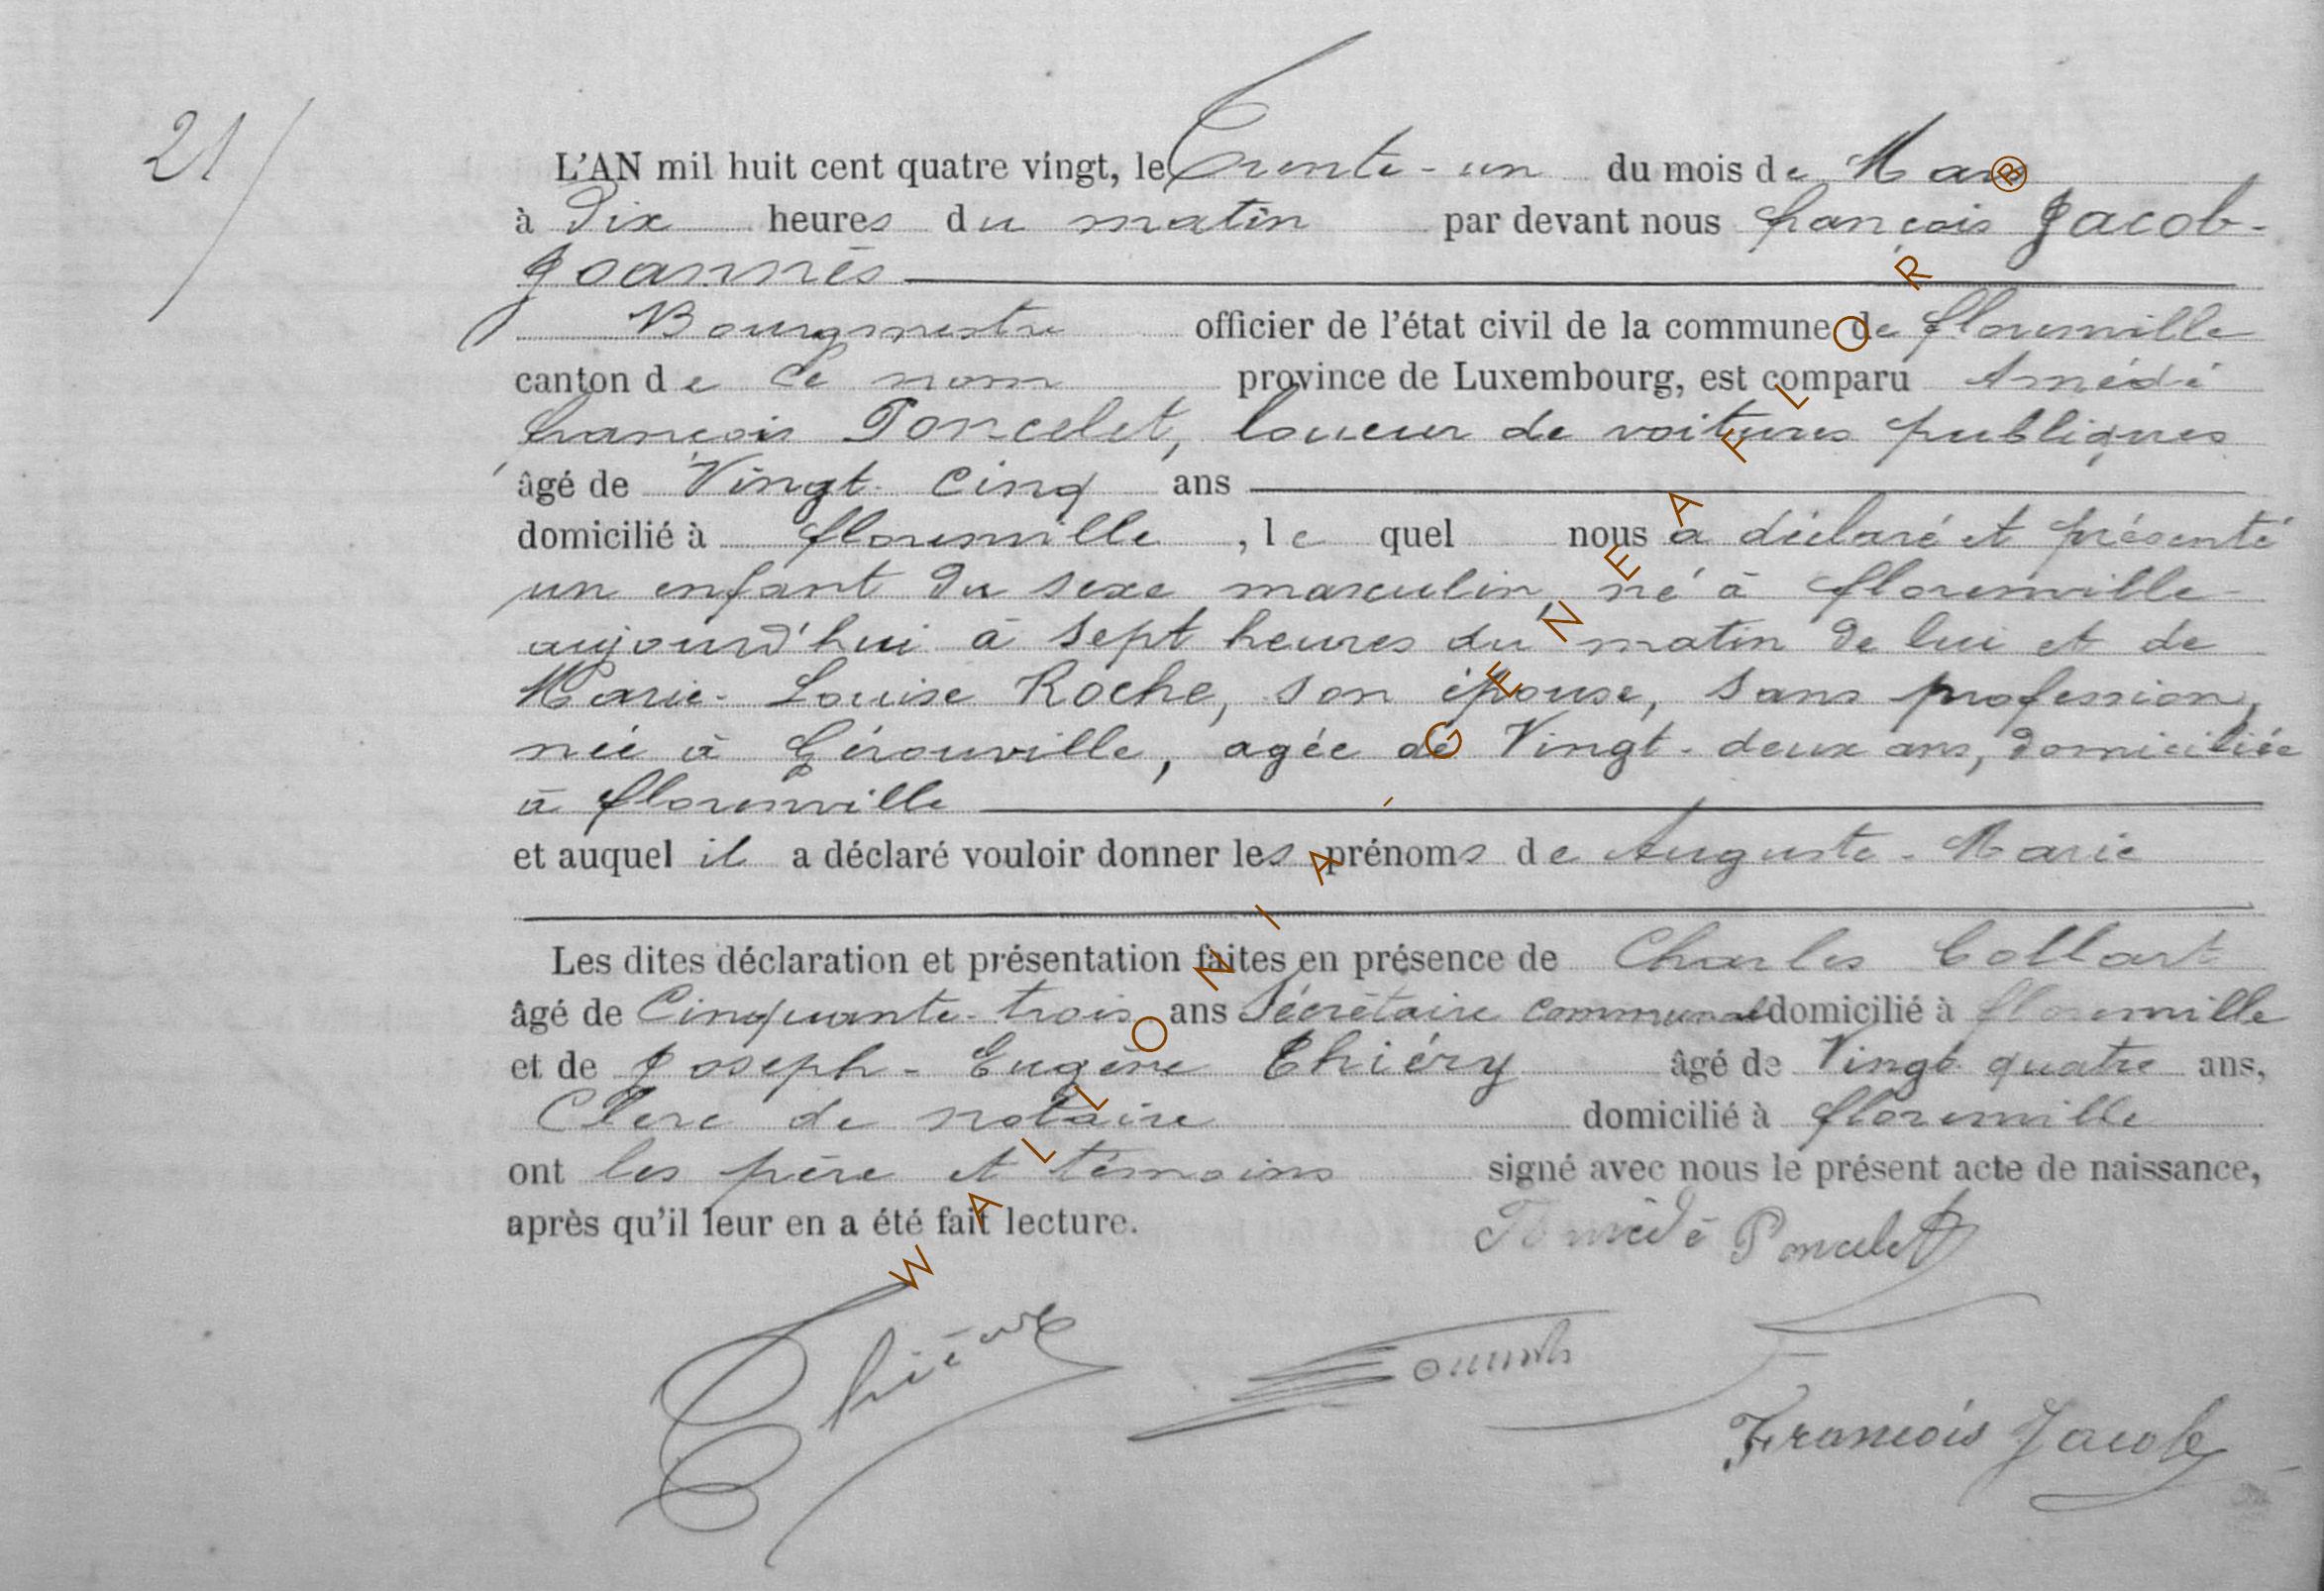 21/
L'AN mil huit cent quatre vingt, le Trente-un du mois de Mars
à Dix heures du matin par devant nous françois Jacob-
Joannès
Bourgmestre officier de l'état civil de la commune de florenville
canton de Ce nom province de Luxembourg, est comparu Amédé
françois Poncelet, loueur de voitures publiques
âgé de Vingt-Cinq ans
domicilié à florenville, le quel nous a déclaré et présenté
un enfant du sexe masculin, né à florenville
aujourd'hui à sept heures du matin de lui et de
Marie-Louise Roche, son épouse, sans profession,
née à Gérouville, agée de Vingt-deux ans, domiciliée
à florenville
et auquel il a déclaré vouloir donner les prénoms de Auguste-Marie
Les dites déclaration et présentation faites en présence de Charles Collart
âgé de Cinquante-trois ans Sécrétaire communal domicilié à florenville
et de Joseph-Eugène Thiéry âgé de Vingt quatre ans,
Clerc de notaire domicilié à florenville
ont les père et témoins signé avec nous le présent acte de naissance,
après qu'il leur en a été fait lecture.
Poncelet
Thiéry
François Jacob
WALLONIA-GENEAFLOR®